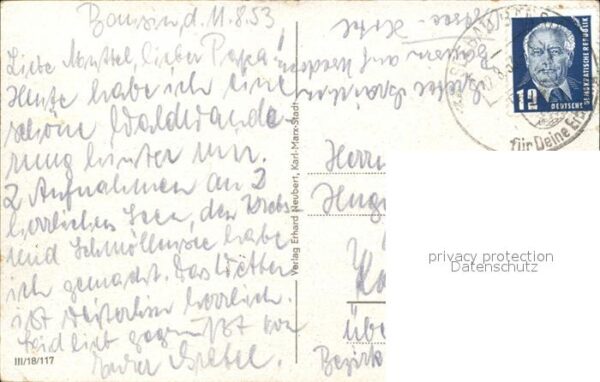 Bansin, d. 11.8.53
Liebe Muttel, lieber Papa!
Heute habe ich eine
schöne Waldwande
rung hinter mir.
2 Aufnahmen an 2
herrlichen Seen, den Krebs
und Schmollensee habe
ich gemacht. Das Wetter
ist weiterhin herrlich.
Seid lieb gegrüßt von
III/18/117
Verlag Erhard Neubert, Karl-Marx-Stadt
Bansin auf
12
DEUTSCHE
DEMOKRATISCHE REPUBLIK
für Deine
Herrn
Hugo
über
Bezirk
privacy protection
Datenschutz